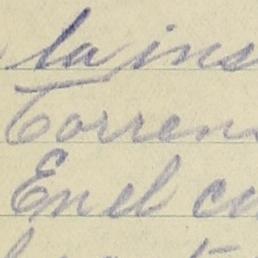 la ins
Torrens
En el cu